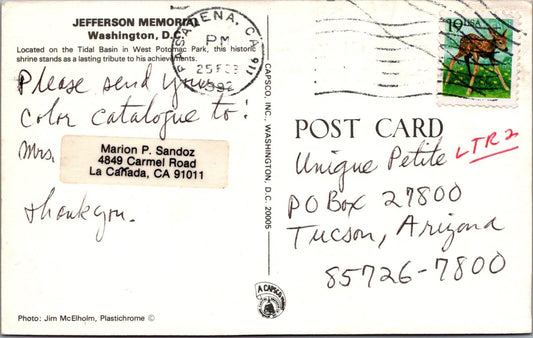 JEFFERSON MEMORIAL
Washington, D.C.
Located on the Tidal Basin in West Potomac Park, this historic
shrine stands as a lasting tribute to his achievements.
PASADENA, CA 911
PM
25 FEB
1992
19 USA
Please send your
color catalogue to!
Mrs.
Marion P. Sandoz
4849 Carmel Road
La Canada, CA 91011
thank you.
CAPSCO, INC., WASHINGTON, D.C. 20005
POST CARD
Unique Petite
LTR 2
PO Box 27800
Tucson, Arizona
85726-7800
A CAPSCO
Photo: Jim McElholm, Plastichrome ©